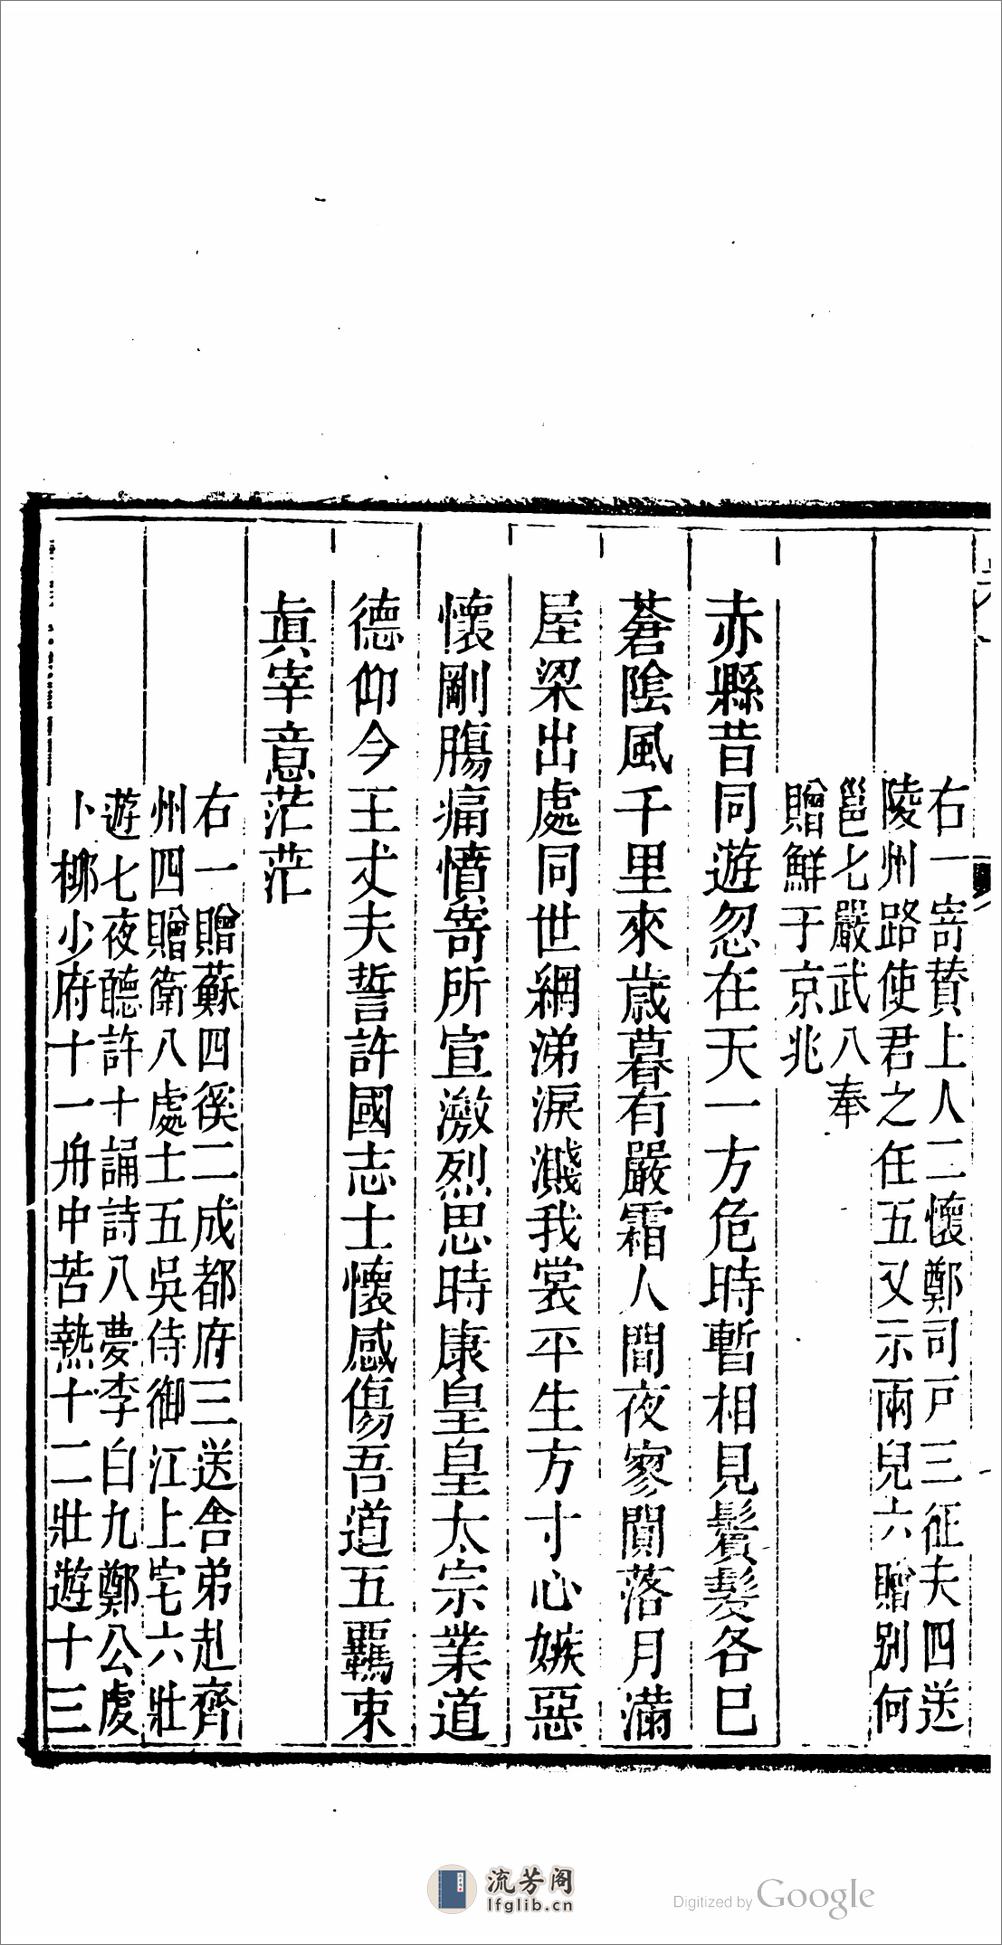 右一寄賛上人二懷鄭司戸三征夫四送
陵州路使君之任五又示兩兒六贈別何
邕七嚴武八奉
贈鮮于京兆
赤縣昔同遊忽在天一方危時暫相見鬢髮各已
蒼陰風千里來歲暮有嚴霜人間夜寥闃落月滿
屋梁出處同世網涕淚濺我裳平生方寸心嫉惡
懷剛腸痛憤寄所宣激烈思時康皇皇太宗業道
德仰今王丈夫誓許國志士懷感傷吾道五羈束
眞宰意茫茫
右一贈蘇四徯二成都府三送舍弟赴齊
州四贈衛八處士五吳侍御江上宅六壯
遊七夜聽許十誦詩八夢李白九鄭公虔
卜椰少府十一舟中苦熱十二壯遊十三
流芳阁
lfglib.cn
Digitized by Google